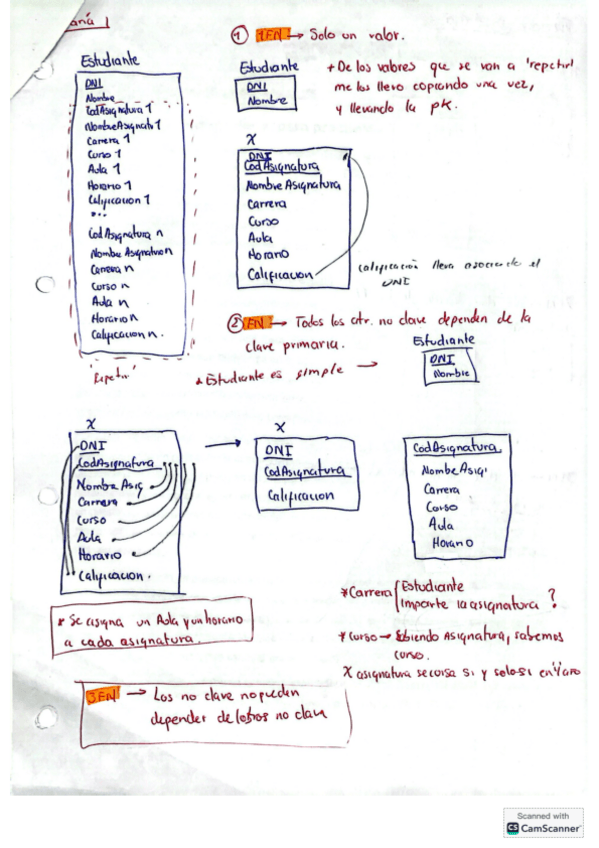 1
① 1FN → Solo un valor.
Estudiante
DNI
Nombre
CodAsignatura 1
NombreAsignatu 1
Carrera 1
Curso 1
Aula 1
Horario 1
Calificacion 1
...
Cod Asignatura n
Nombre Asignatura n
Carrera n
Curso n
Aula n
Horario n
Calificacion n.
'Repetir'
Estudiante
DNI
Nombre
+ De los valores que se van a 'repetir'
me los llevo copiando una vez,
y llevando la pk.
X
DNI
CodAsignatura
Nombre Asignatura
Carrera
Curso
Aula
Horario
Calificacion
calificación lleva asociado el
DNI
② FN → Todos los atr. no clave dependen de la
clave primaria.
* Estudiante es simple →
Estudiante
DNI
Nombre
X
DNI
CodAsignatura
Nombre Asig
Carrera
Curso
Aula
Horario
Calificacion.
X
DNI
CodAsignatura
Calificacion
CodAsignatura
Nombre Asig
Carrera
Curso
Aula
Horario
* Se asigna un Aula y un horario
a cada asignatura.
*Carrera Estudiante
Imparte la asignatura ?
*Curso → Sabiendo Asignatura, sabemos
curso.
X asignatura se cursa si y solo si en Y año
3FN → Los no clave no pueden
depender de otros no clave
Scanned with
CS CamScanner